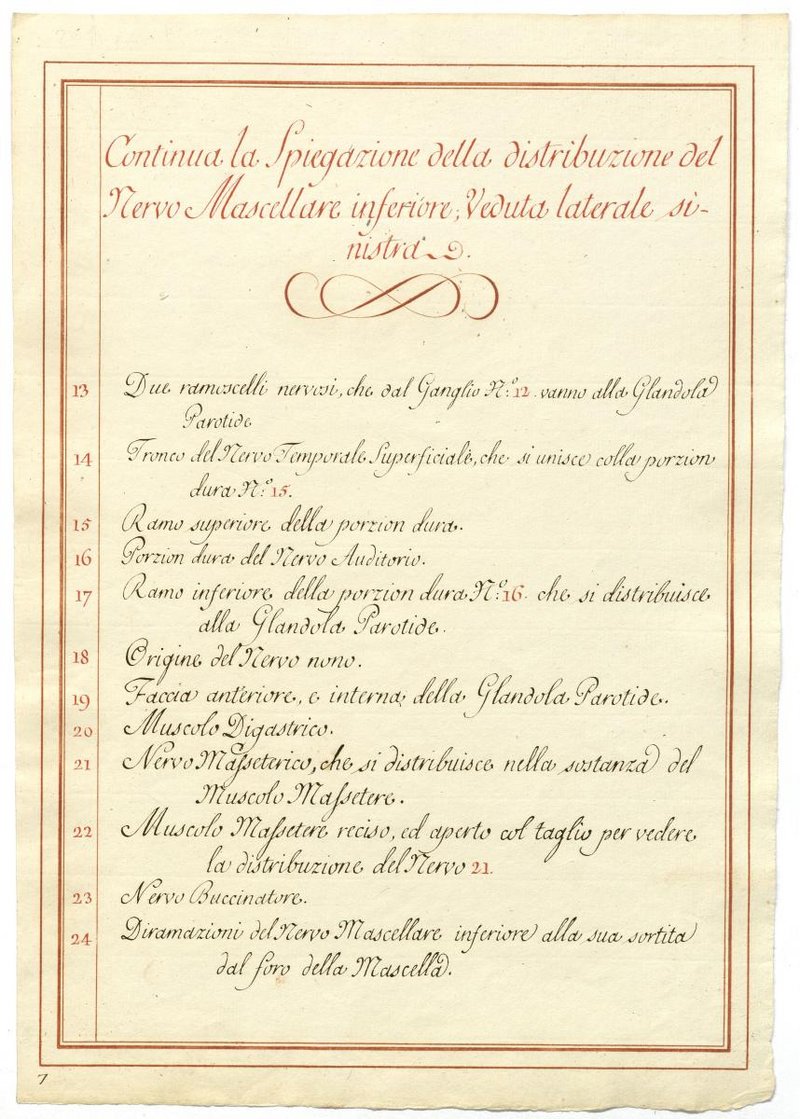 Continua la Spiegazione della distribuzione del
Nervo Mascellare inferiore, Veduta laterale si-
nistra.
13 Due ramoscelli nervosi, che dal Ganglio N.º 12. vanno alla Glandola
Parotide
14 Tronco del Nervo Temporale Superficiale, che si unisce colla porzion
dura N.º 15.
15 Ramo superiore della porzion dura.
16 Porzion dura del Nervo Auditorio.
17 Ramo inferiore della porzion dura N.º 16. che si distribuisce
alla Glandola Parotide.
18 Origine del Nervo nono.
19 Faccia anteriore, e interna, della Glandola Parotide.
20 Muscolo Digastrico.
21 Nervo Maſseterico, che si distribuisce nella sostanza del
Muscolo Maſsetere.
22 Muscolo Maſsetere reciso, ed aperto col taglio per vedere
la distribuzione del Nervo 21.
23 Nervo Buccinatore.
24 Diramazioni del Nervo Mascellare inferiore alla sua sortita
dal foro della Mascella.
7